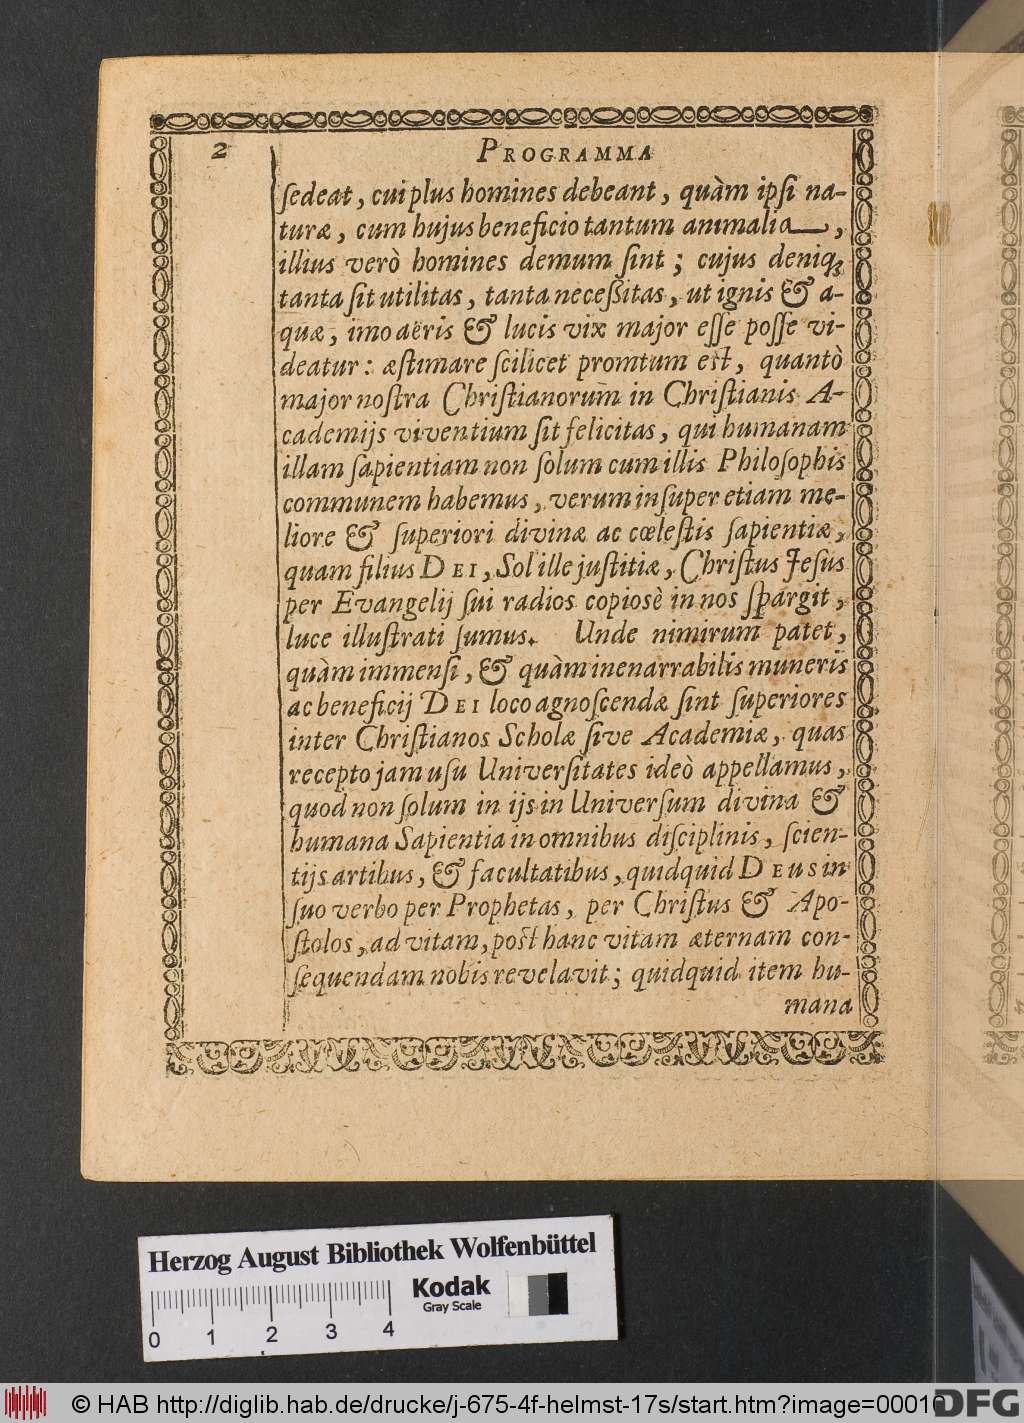 2
PROGRAMMA
ſedeat, cui plus homines debeant, quàm ipſi na-
turæ, cum hujus beneficio tantum animalia,
illius verò homines demum ſint; cujus deniq₃
tanta ſit utilitas, tanta neceßitas, ut ignis & a-
quæ, imo aëris & lucis vix major eſſe poſſe vi-
deatur: æſtimare ſcilicet promtum eſt, quantò
major noſtra Chriſtianorum̄ in Chriſtianis A-
cademijs viventium ſit felicitas, qui humanam
illam ſapientiam non ſolum cum illis Philoſophis
communem habemus, verum inſuper etiam me-
liore & ſuperiori divinæ ac cœleſtis ſapientiæ,
quam filius DEI, Sol ille juſtitiæ, Chriſtus Jeſus
per Evangelij ſui radios copiosè in nos ſpargit,
luce illuſtrati ſumus. Unde nimirum patet,
quàm immenſi, & quàm inenarrabilis muneris
ac beneficij DEI loco agnoſcendæ ſint ſuperiores
inter Chriſtianos Scholæ ſive Academiæ, quas
recepto jam uſu Univerſitates ideò appellamus,
quod non ſolum in ijs in Univerſum divina &
humana Sapientia in omnibus diſciplinis, ſcien-
tijs artibus, & facultatibus, quidquid DEUS in
ſuo verbo per Prophetas, per Chriſtus & Apo-
ſtolos, ad vitam, poſt hanc vitam æternam con-
ſequendam nobis revelavit; quidquid item hu-
mana
Herzog August Bibliothek Wolfenbüttel
Kodak
Gray Scale
0 1 2 3 4
© HAB http://diglib.hab.de/drucke/j-675-4f-helmst-17s/start.htm?image=00010
DFG